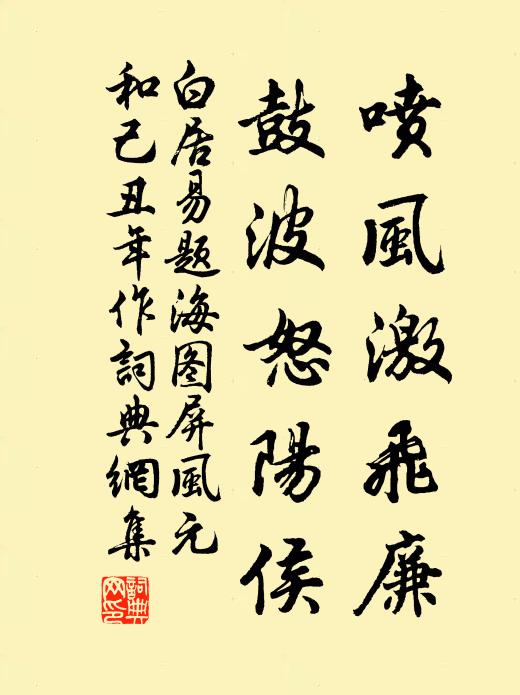 喷風激飛廉
鼓波怒陽侯
白居易題海图屏風元
和己丑年作詞典網集
詞典網印